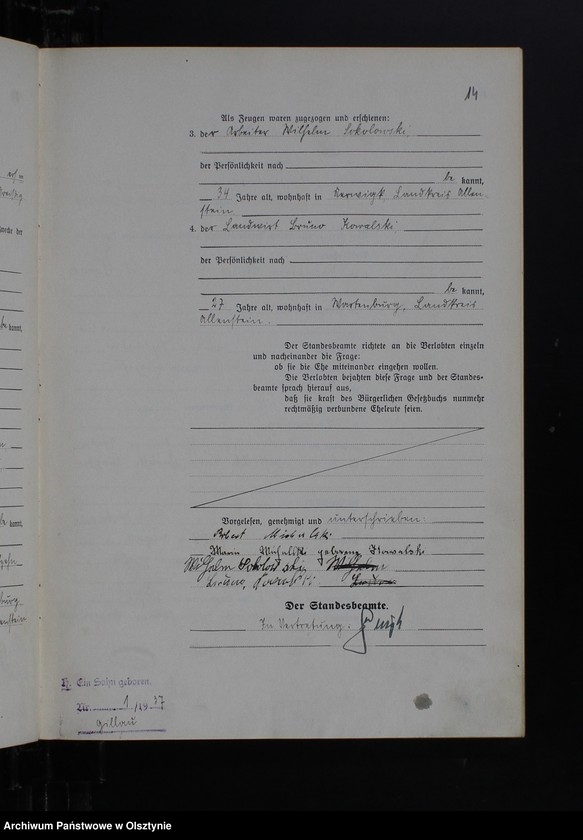 14
Als Zeugen waren zugezogen und erschienen:
3. der Arbeiter Wilhelm Sokolowski,
der Persönlichkeit nach
be kannt,
34 Jahre alt, wohnhaft in Kerwigk, Landkreis Allen-
stein
4. der Landwirt Bruno Kowalski
der Persönlichkeit nach
be kannt,
27 Jahre alt, wohnhaft in Wartenburg, Landkreis
Allenstein.
Der Standesbeamte richtete an die Verlobten einzeln
und nacheinander die Frage:
ob sie die Ehe miteinander eingehen wollen.
Die Verlobten bejahten diese Frage und der Standes-
beamte sprach hierauf aus,
daß sie kraft des Bürgerlichen Gesetzbuchs nunmehr
rechtmäßig verbundene Eheleute seien.
Vorgelesen, genehmigt und unterschrieben:
geborene Kowalski
Wilhelm Sokolowski Wilhelm
Bruno Kowalski
Der Standesbeamte.
In Vertretung:
Ein Sohn geboren.
Nr. 1/1937
Gillau
kannt,
kannt,
Archiwum Państwowe w Olsztynie